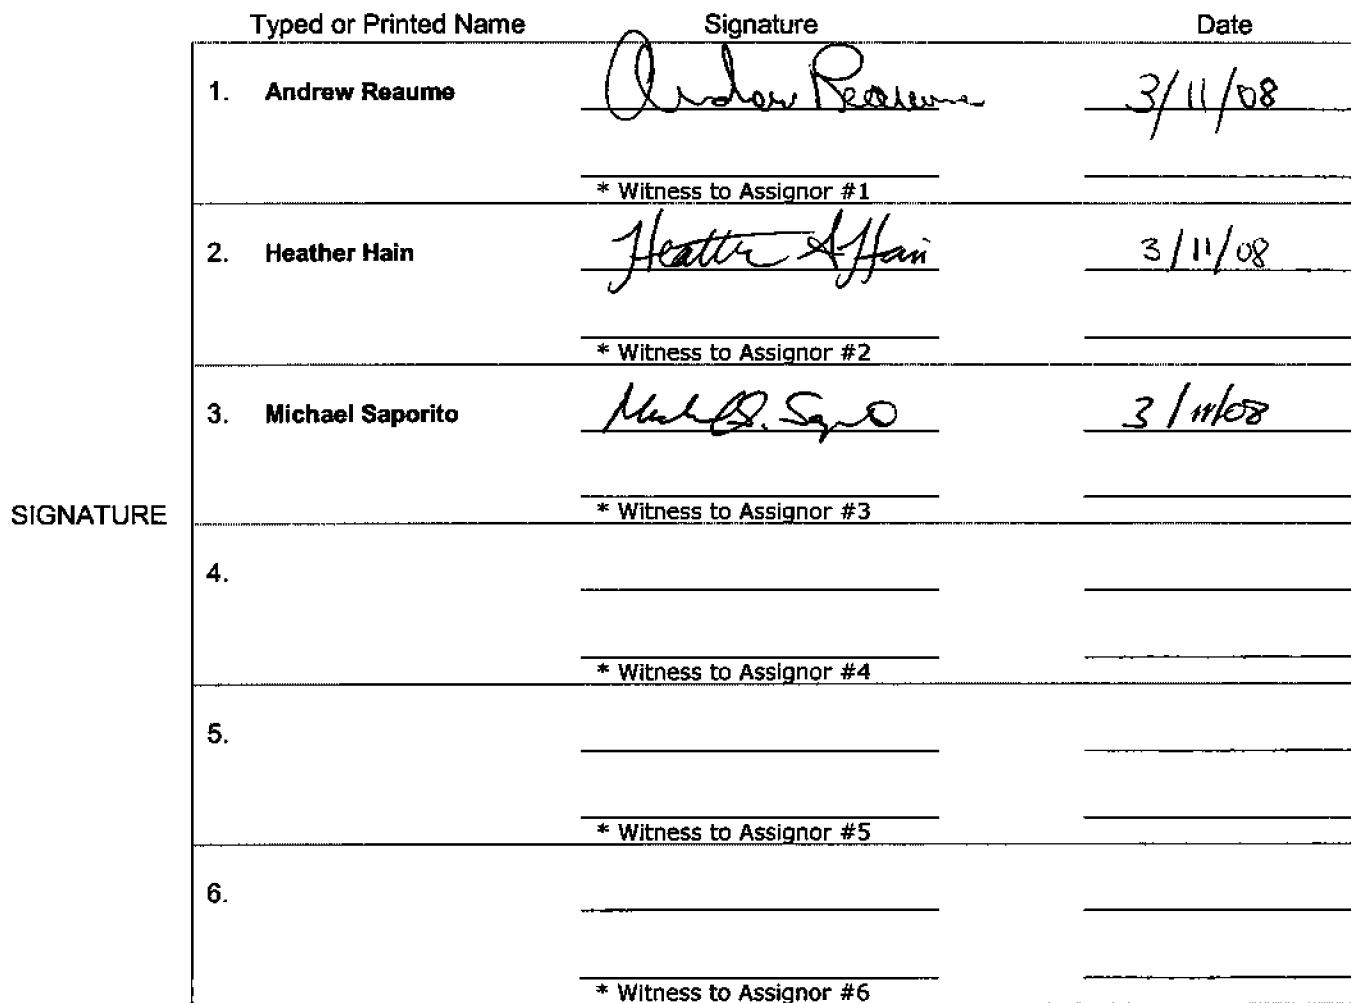 Typed or Printed Name Signature Date
1. Andrew Reaume Andrew Reaume 3/11/08
* Witness to Assignor #1
2. Heather Hain Heather A Hain 3/11/08
* Witness to Assignor #2
3. Michael Saporito Michael S. Saporito 3/11/08
SIGNATURE
* Witness to Assignor #3
4.
* Witness to Assignor #4
5.
* Witness to Assignor #5
6.
* Witness to Assignor #6